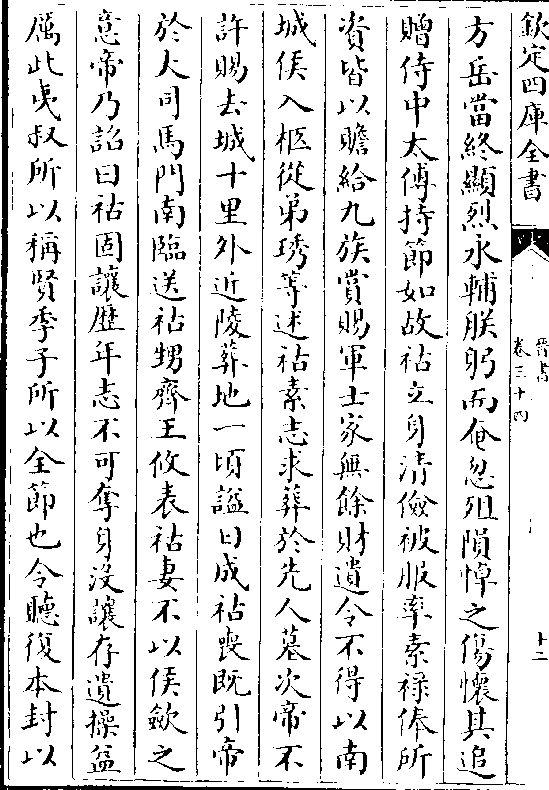 欽定四庫全書
晉書
卷三十四
十二
方岳當終顯烈永輔朕躬而奄忽殂隕悼之傷懷其追
贈侍中太傅持節如故祜立身清儉被服率素祿俸所
資皆以贍給九族賞賜軍士家無餘財遺令不得以南
城侯入柩從弟琇等述祜素志求葬於先人墓次帝不
許賜去城十里外近陵葬地一頃諡曰成祜喪既引帝
於大司馬門南臨送祜甥齊王攸表祜妻不以侯歛之
意帝乃詔曰祜固讓歴年志不可奪身没讓存遺操益
厲此夷叔所以稱賢季子所以全節也今聽復本封以